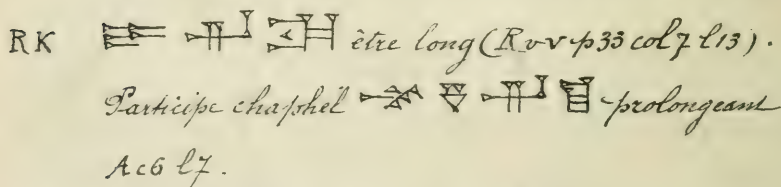 RK 𒂊 𒊑 être long (R v v p 33 col 7 l 13).
Participe chaphél 𒈬 𒊭 𒊑 𒆪 prolongeant
Ac 6 l 7.